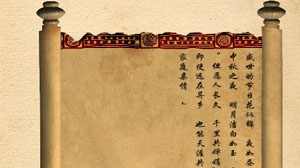 盛世的节日花似锦 夜如昼
中秋之夜 明月洁白如玉
“但愿人长久 千里共婵娟”
即使远在异乡 也能天涯共
家庭亲情。